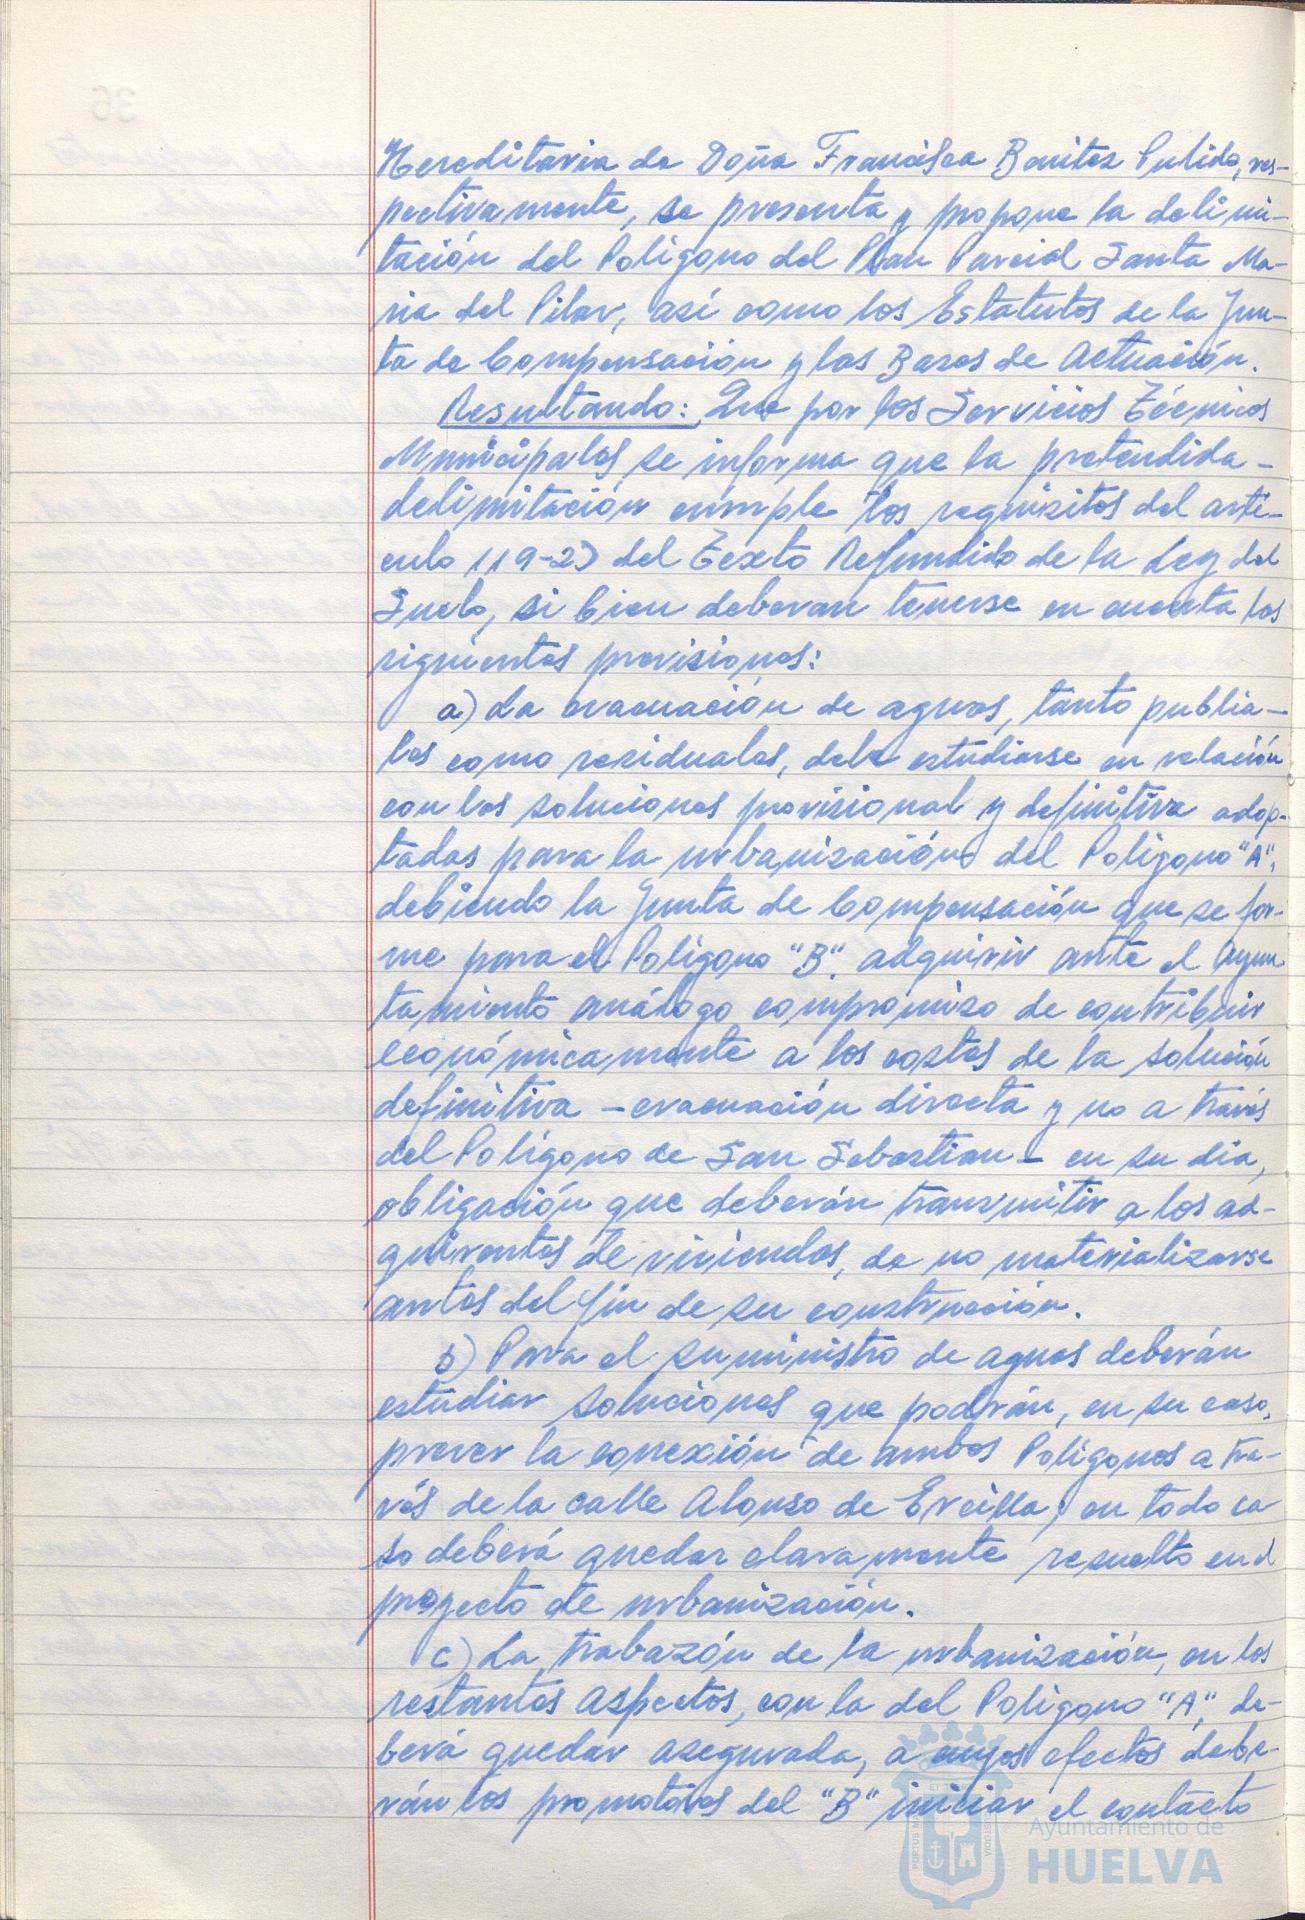 Hereditaria de Doña Francisca Benitez Pulido, res-
pectivamente, se presenta y propone la delimi-
tación del Poligono del Plan Parcial Santa Ma-
ria del Pilar, así como los Estatutos de la Jun-
ta de Compensación y las Bases de Actuación.
Resultando: Que por los Servicios Técnicos
Municipales se informa que la pretendida-
delimitación cumple los requisitos del artí-
culo 119-2) del Texto Refundido de la Ley del
Suelo, si bien deberan tenerse en cuenta las
siguientes previsiones:
a) La evacuación de aguas, tanto pluvia-
les como residuales, debe estudiarse en relación
con las soluciones provisional y definitiva adop-
tadas para la urbanización del Poligono "A",
debiendo la Junta de Compensación que se for-
me para el Poligono "B", adquirir ante el Ayun
tamiento análogo compromiso de contribuir
económicamente a los costes de la solución
definitiva - evacuación directa y no a través
del Polígono de San Sebastian - en su dia,
obligación que deberán transmitir a los ad-
quirentes de viviendas, de no materializarse
antes del fin de su construcción.
b) Para el suministro de aguas deberán
estudiar soluciones que podrán, en su caso,
prever la conexión de ambos Polígonos a tra-
vés de la calle Alonso de Ercilla; en todo ca
so deberá quedar claramente resuelto en el
proyecto de urbanización.
c) La trabazón de la urbanización, en los
restantes aspectos, con la del Poligono "A", de-
berá quedar asegurada, a cuyos efectos debe-
rán los promotores del "B" iniciar el contacto
Ayuntamiento de
HUELVA